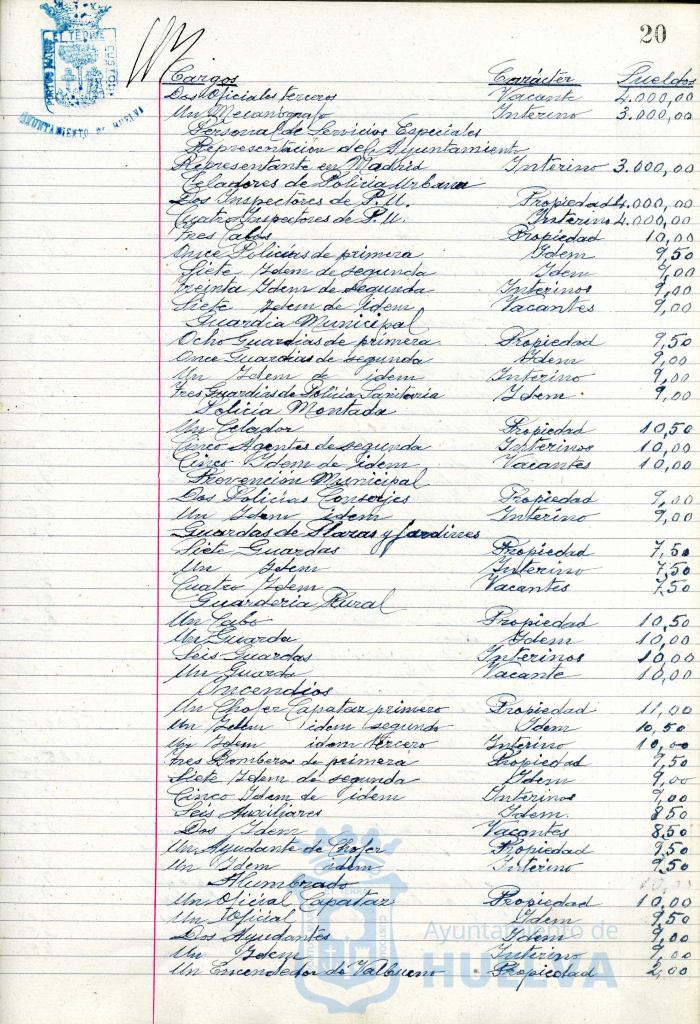 20
AYUNTAMIENTO DE HUELVA
Cargos Carácter Sueldos
Dos Oficiales terceros Vacante 4.000,00
Un Mecanógrafo Interino 3.000,00
Personal de Servicios Especiales
Representacion del Ayuntamiento
Representante en Madrid Interino 3.000,00
Celadores de Policia Urbana
Dos Inspectores de P.U. Propiedad 4.000,00
Cuatro Inspectores de P.U. Interino 4.000,00
Tres Cabos Propiedad 10,00
Once Policias de primera Idem 9,50
Siete Idem de segunda Idem 9,00
Treinta Idem de segunda Interinos 9,00
Siete Idem de idem Vacantes 9,00
Guardia Municipal
Ocho Guardias de primera Propiedad 9,50
Once Guardias de segunda Idem 9,00
Un Idem de idem Interino 9,00
Tres Guardias de Policia Sanitaria Idem 9,00
Policia Montada
Un Celador Propiedad 10,50
Cinco Agentes de segunda Interinos 10,00
Cinco Idem de idem Vacantes 10,00
Prevención Municipal
Dos Policias Conserjes Propiedad 9,00
Un Idem idem Interino 9,00
Guardas de Plazas y Jardines
Siete Guardas Propiedad 7,50
Un Idem Interino 7,50
Cuatro Idem Vacantes 7,50
Guarderia Rural
Un Cabo Propiedad 10,50
Un Guarda Idem 10,00
Seis Guardas Interinos 10,00
Un Guarda Vacante 10,00
Incendios
Un Chofer Capataz primero Propiedad 11,00
Un Idem idem segundo Idem 10,50
Un Idem idem tercero Interino 10,00
Tres Bomberos de primera Propiedad 9,50
Siete Idem de segunda Idem 9,00
Cinco Idem de idem Interinos 9,00
Seis Auxiliares Idem 8,50
Dos Idem Vacantes 8,50
Un Ayudante de Chofer Propiedad 9,50
Un Idem idem Interino 9,50
Alumbrado
Un Oficial Capataz Propiedad 10,00
Un Oficial Idem 9,50
Dos Ayudantes Idem 9,00
Un Idem Interino 9,00
Un Encendedor de Propiedad 2,00
Ayuntamiento de
HUELVA